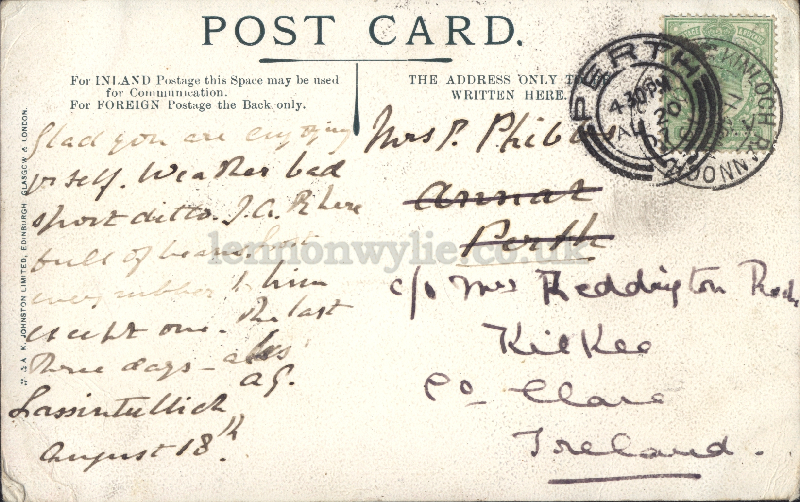 POST CARD.
For INLAND Postage this Space may be used
for Communication.
For FOREIGN Postage the Back only.
THE ADDRESS ONLY TO
WRITTEN HERE.
PERTH
4-30PM
AU 20
07
KINLOCH RANNOCH
W. & A. K. JOHNSTON LIMITED, EDINBURGH, GLASGOW & LONDON.
Glad you are enjoying
yrself. Weather bad
sport ditto. J.A.P. here
full of beans. Lost
every rubber to him
except one. The last
three days -
A.G.
Lassintullich
August 18th
Mrs P. Phibbs
Annat
Perth
c/o Mrs Reddington Roche
Kilkee
Co Clare
Ireland.
lennonwylie.co.uk